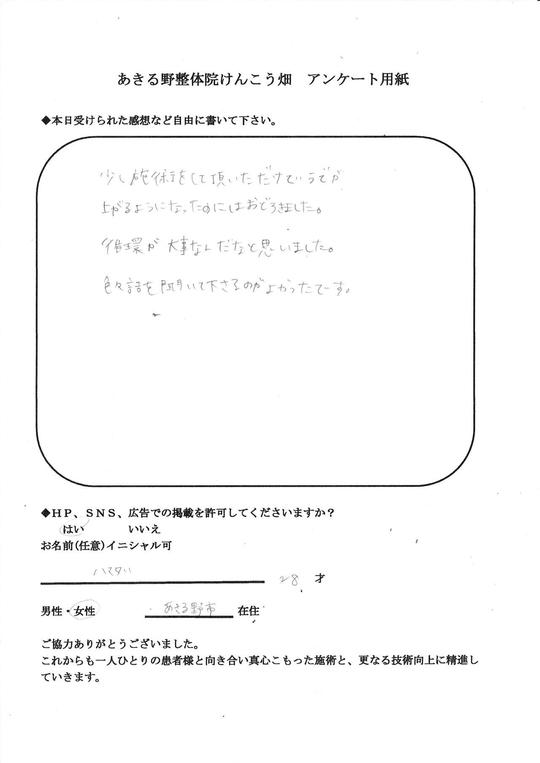 あきる野整体院けんこう畑　アンケート用紙
◆本日受けられた感想など自由に書いて下さい。
少し施術をして頂いただけでうでが
上がるようになったのにはおどろきました。
循環が大事なんだなと思いました。
色々話を聞いて下さるのがよかったです。
◆ＨＰ、ＳＮＳ、広告での掲載を許可してくださいますか？
はい　いいえ
お名前(任意)イニシャル可
28 才
男性・女性　あきる野市 在住
ご協力ありがとうございました。
これからも一人ひとりの患者様と向き合い真心こもった施術と、更なる技術向上に精進し
ていきます。